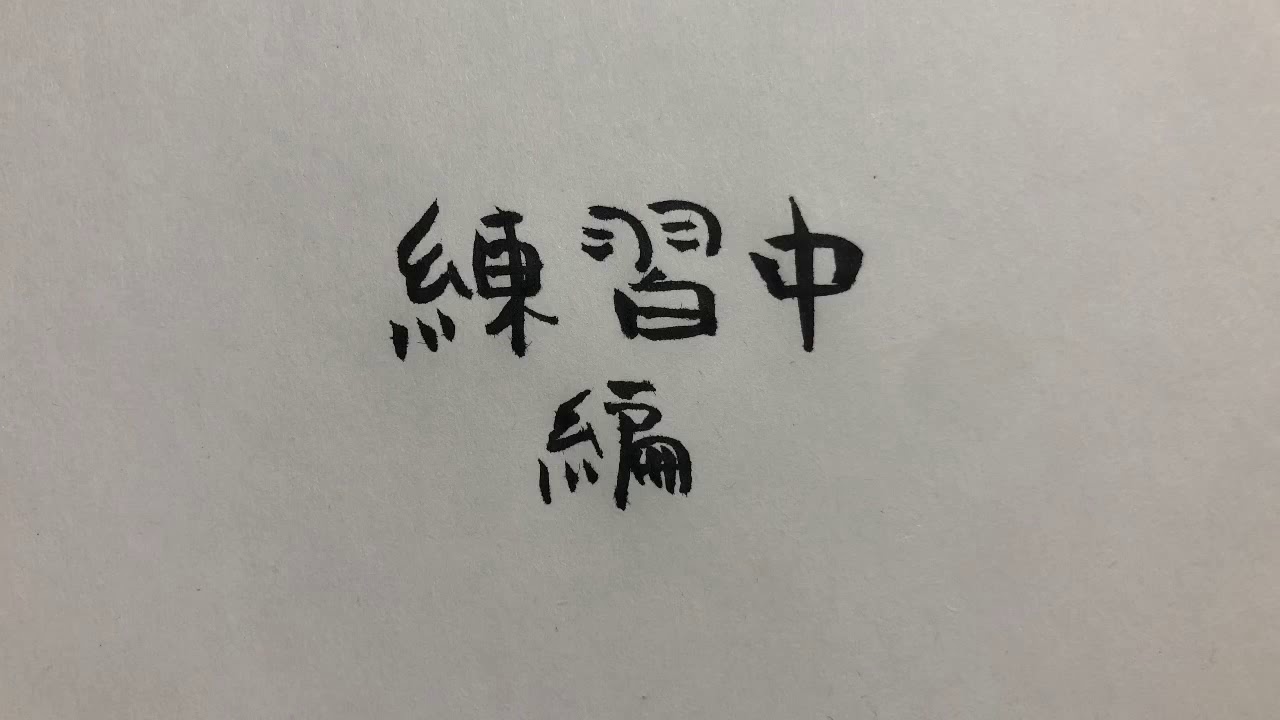 練習中
編